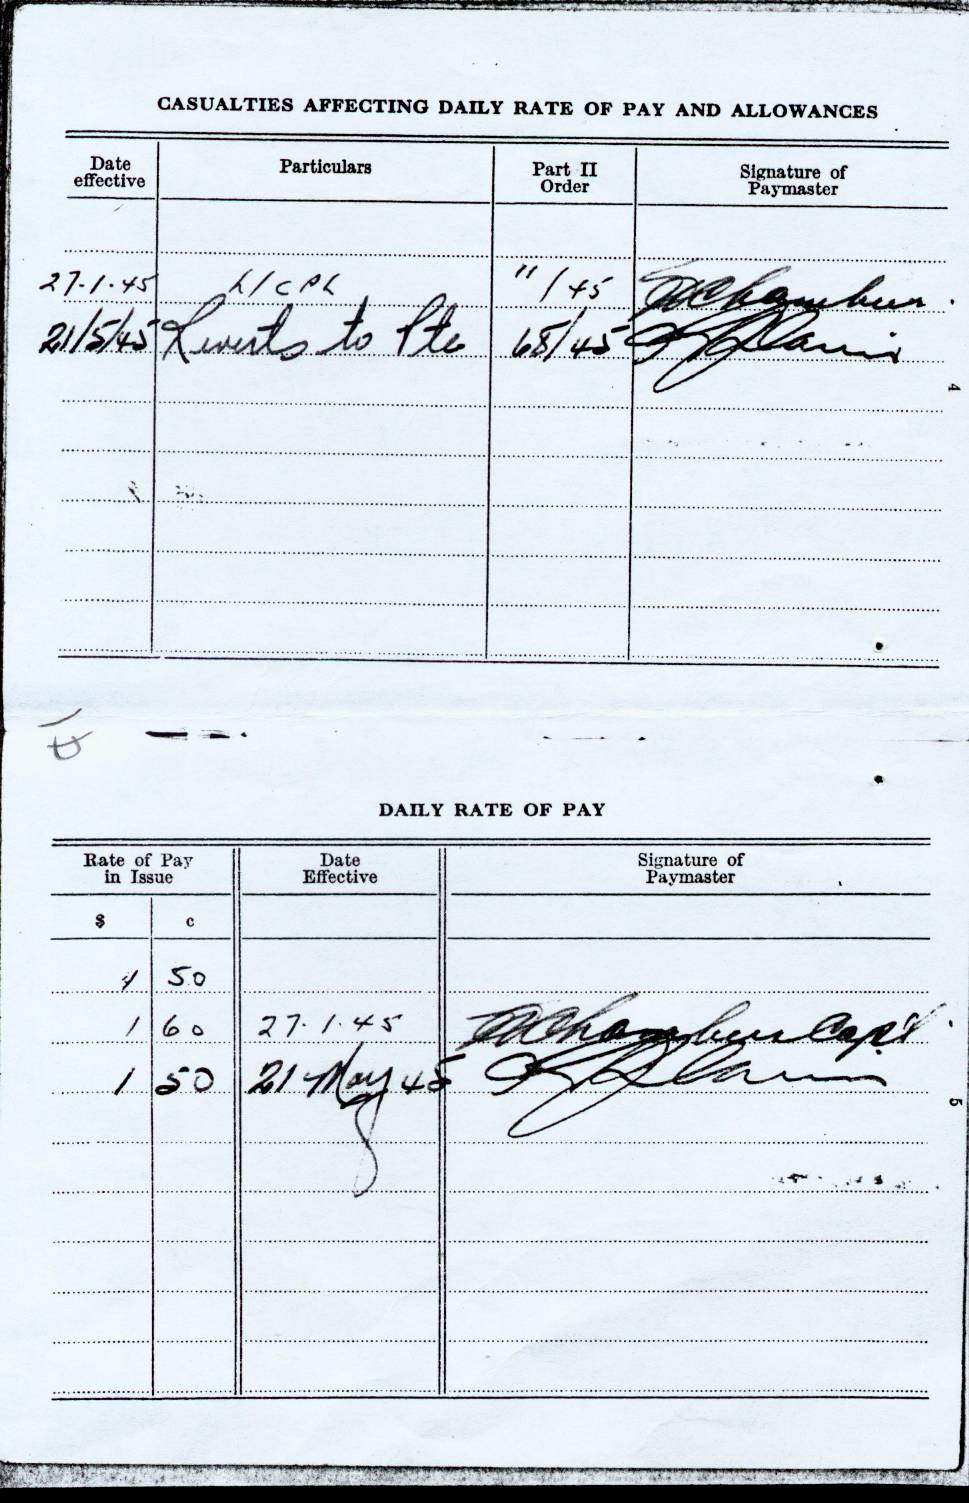 CASUALTIES AFFECTING DAILY RATE OF PAY AND ALLOWANCES
Date effective Particulars Part II Order Signature of Paymaster
27·1·45 L/CPL 11/45 Chambers
21/5/45 Reverts to Pte 68/45
4
DAILY RATE OF PAY
Rate of Pay in Issue Date Effective Signature of Paymaster
$ c
1 50
1 60 27·1·45 Chambers Capt.
1 50 21 May 45
5